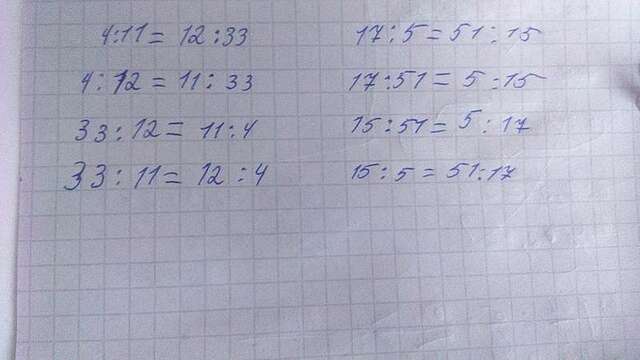 4:11 = 12:33
4:12 = 11:33
33:12 = 11:4
33:11 = 12:4
17:5 = 51:15
17:51 = 5:15
15:51 = 5:17
15:5 = 51:17